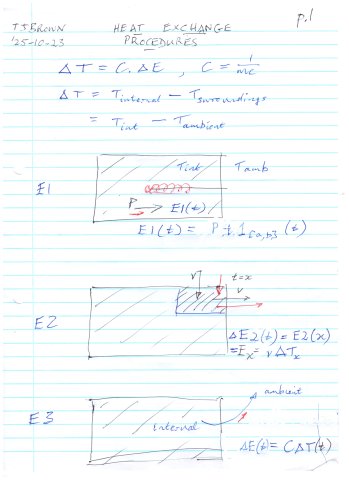 TJBROWN HEAT EXCHANGE p.1
'25-10-23 PROCEDURES
ΔT = C.ΔE , C = 1/mc
ΔT = Tinternal - Tsurroundings
= Tint - Tambient
Tint Tamb
E1
P → E1(t)
E1(t) = P.t.1[a,b](t)
v t=x
v
E2
ΔE2(t) = E2(x)
= Ex = vΔTx
ambient
E3
internal
ΔE(t) = CΔT(t)